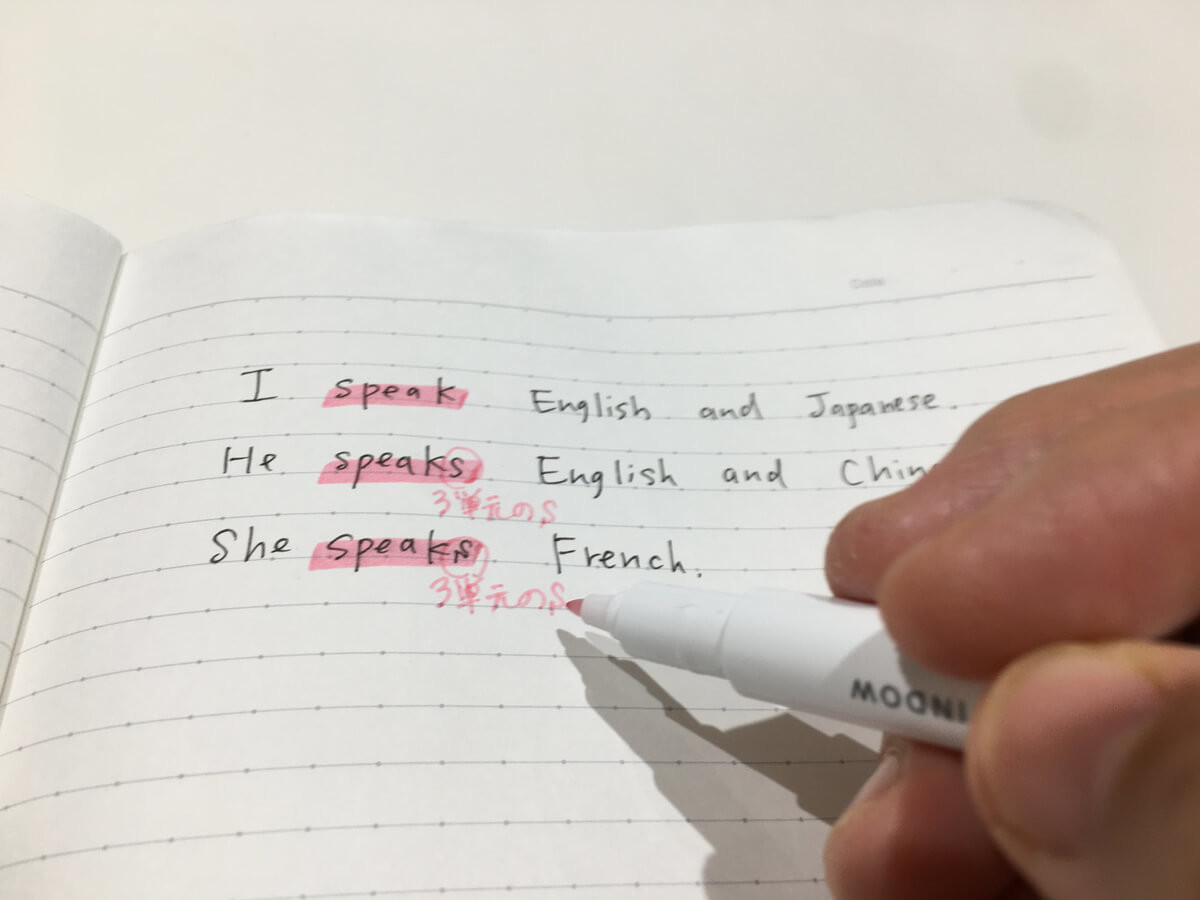 Date
I speak English and Japanese.
He speaks English and
3単元のS
She speaks French.
3単元のS